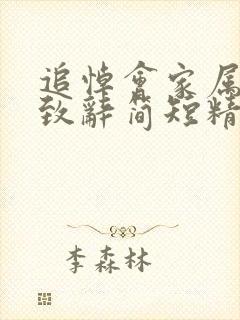 追悼會家属
致辭简短精
李森林